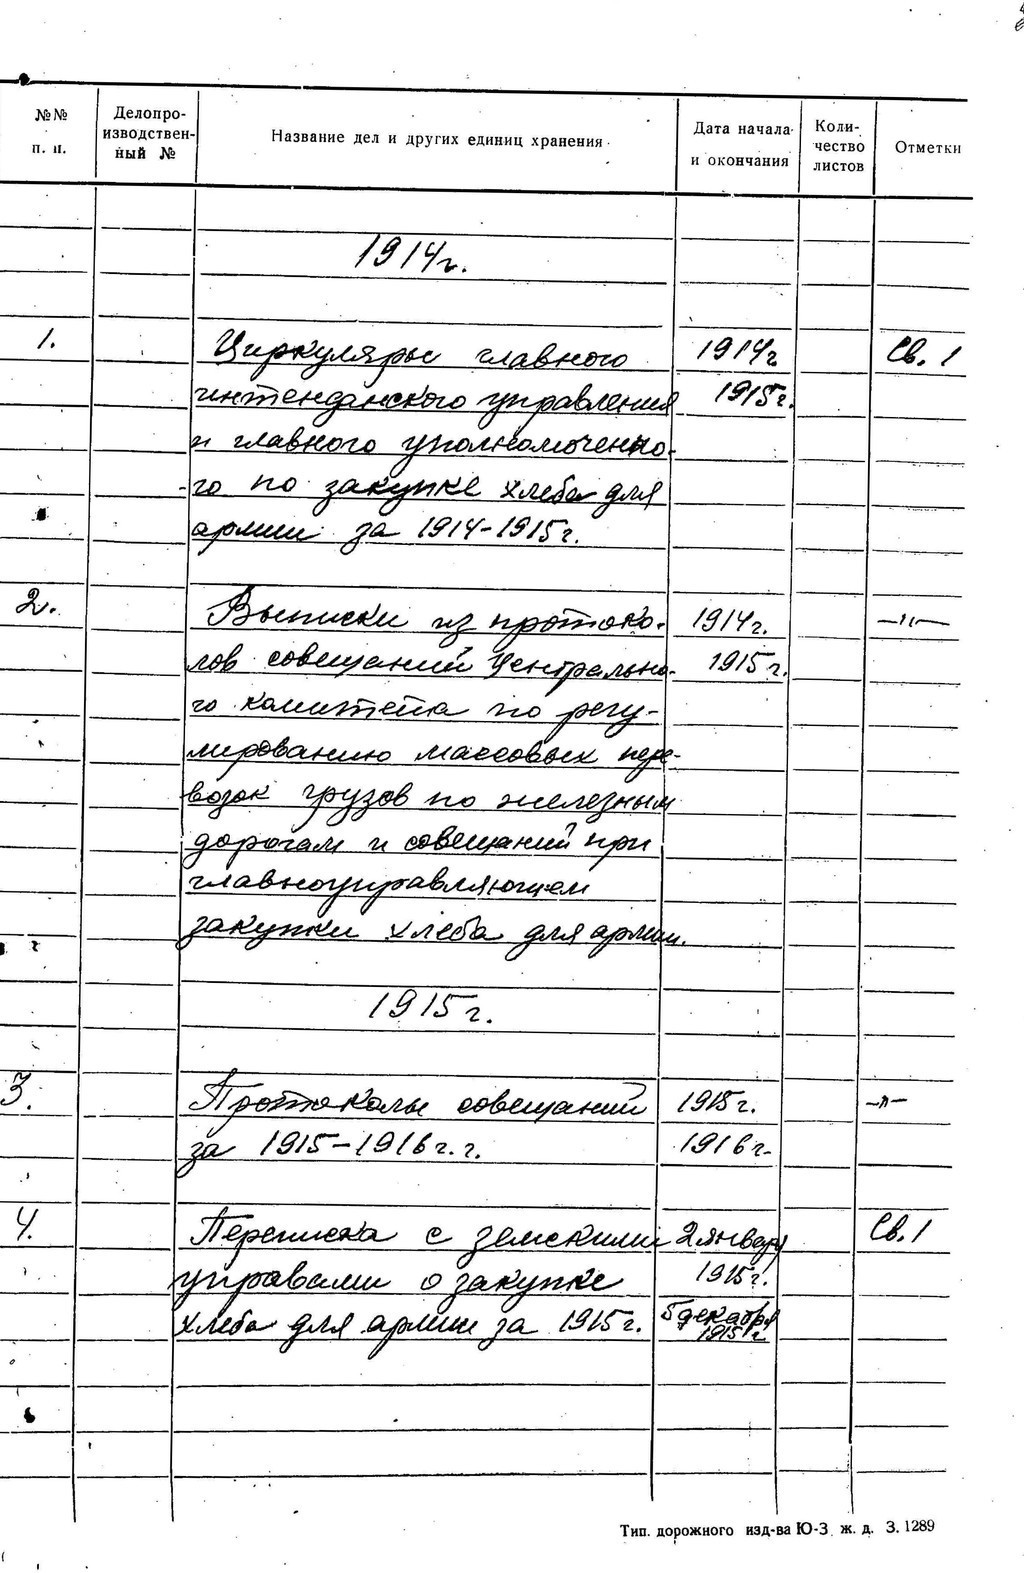 №№ п. п.
Делопро-
изводствен-
ный №
Название дел и других единиц хранения
Дата начала
и окончания
Коли-
чество
листов
Отметки
1914г.
1. Циркуляры главного 1914г Св. 1
интенданского управления 1915г.
и главного уполномоченно-
го по закупке хлеба для
армии за 1914-1915г.
2. Выписки из протоко- 1914г. —"—
лов совещаний Центрально- 1915г.
го комитета по регу-
лированию массовых пере-
возок грузов по железным
дорогам и совещаний при
главноуправляющем
закупки хлеба для армии.
1915г.
3. Протоколы совещаний 1915г. —"—
за 1915-1916г.г. 1916г.
4. Переписка с земскими 2 января Св. 1
управами о закупке 1915г.
хлеба для армии за 1915г. 5 декабря
1915г
Тип. дорожного изд-ва Ю-З. ж. д. З. 1289